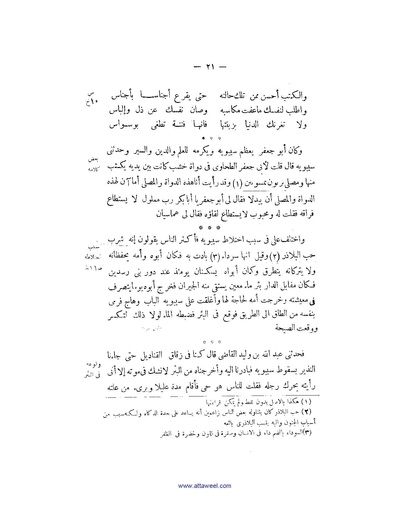 — ٢١ —
والكذب أحسن ممن تلك حالته حتى يقرع أجناســا بأجناس
واطلب لنفسك ماعفت مكاسبه وصان نفسك عن ذل وإلباس
ولا تغرنك الدنيا بزينتها فانها فتنة تطغى بوسواس
* * *
وكان أبو جعفر يعظم سيبويه ويكرمه للعلم والدين والستر وحدثني
سيبويه قال قلت لأبي جعفر الطحاوى فى دواة خشب كانت بين يديه يكتب
منها ومصلى (١) وقد رأيت أناهذه الدواة والمصلى أما آن لهذه
الدواة والمصلى أن يبدلا فقال لى أبو جعفر يا أبا بكر رب مملول لا يستطاع
فراقه فقلت له ومحبوب لا يستطاع لقاؤه فقال لى
* * *
واختلف على فى سبب اختلاط سيبويه فأكثر الناس يقولون إنه شرب
حب البلاذر (٢) وقيل انها سوداء (٣) بادت به فكان أبوه وأمه يحفظانه
ولا يتركانه يتطرق وكان أبواه يسكنان يومئذ عند دور بنى رسدين
فكان مقابل الدار بئر ماء معين يستقى منه الجيران فخرج أبوه يوما يتصرف
فى معيشته وخرجت أمه لحاجة لها وأغلقت على سيبويه الباب وهاج فرمى
بنفسه من الطاق الى الطريق فوقع فى البئر فضبطه الماء لولا ذلك لتكسر
ووقعت الصيحة
* * *
فحدثنى عبد الله بن وليد القاضى قال كنا فى زقاق القناديل حتى جاءنا
النذير بسقوط سيبويه فبادرنا اليه وأخرجناه من البئر لانشك فى موته إلا أنى
رأيته يحرك رجله فقلت للناس هو حى فأقام مدة عليلا وبرىء من علته
(١) هكذا بالاصل بدون نقط ولم يمكن قراءتها
(٢) حب البلاذر كان يتناوله بعض الناس زاعمين أنه يساعد على حدة الذكاء
أسباب الجنون واليه ينسب البلاذرى
(٣) السوداء بالضم داء فى الانسان وصفرة فى اللون وخضرة فى الظفر
www.attaweel.com